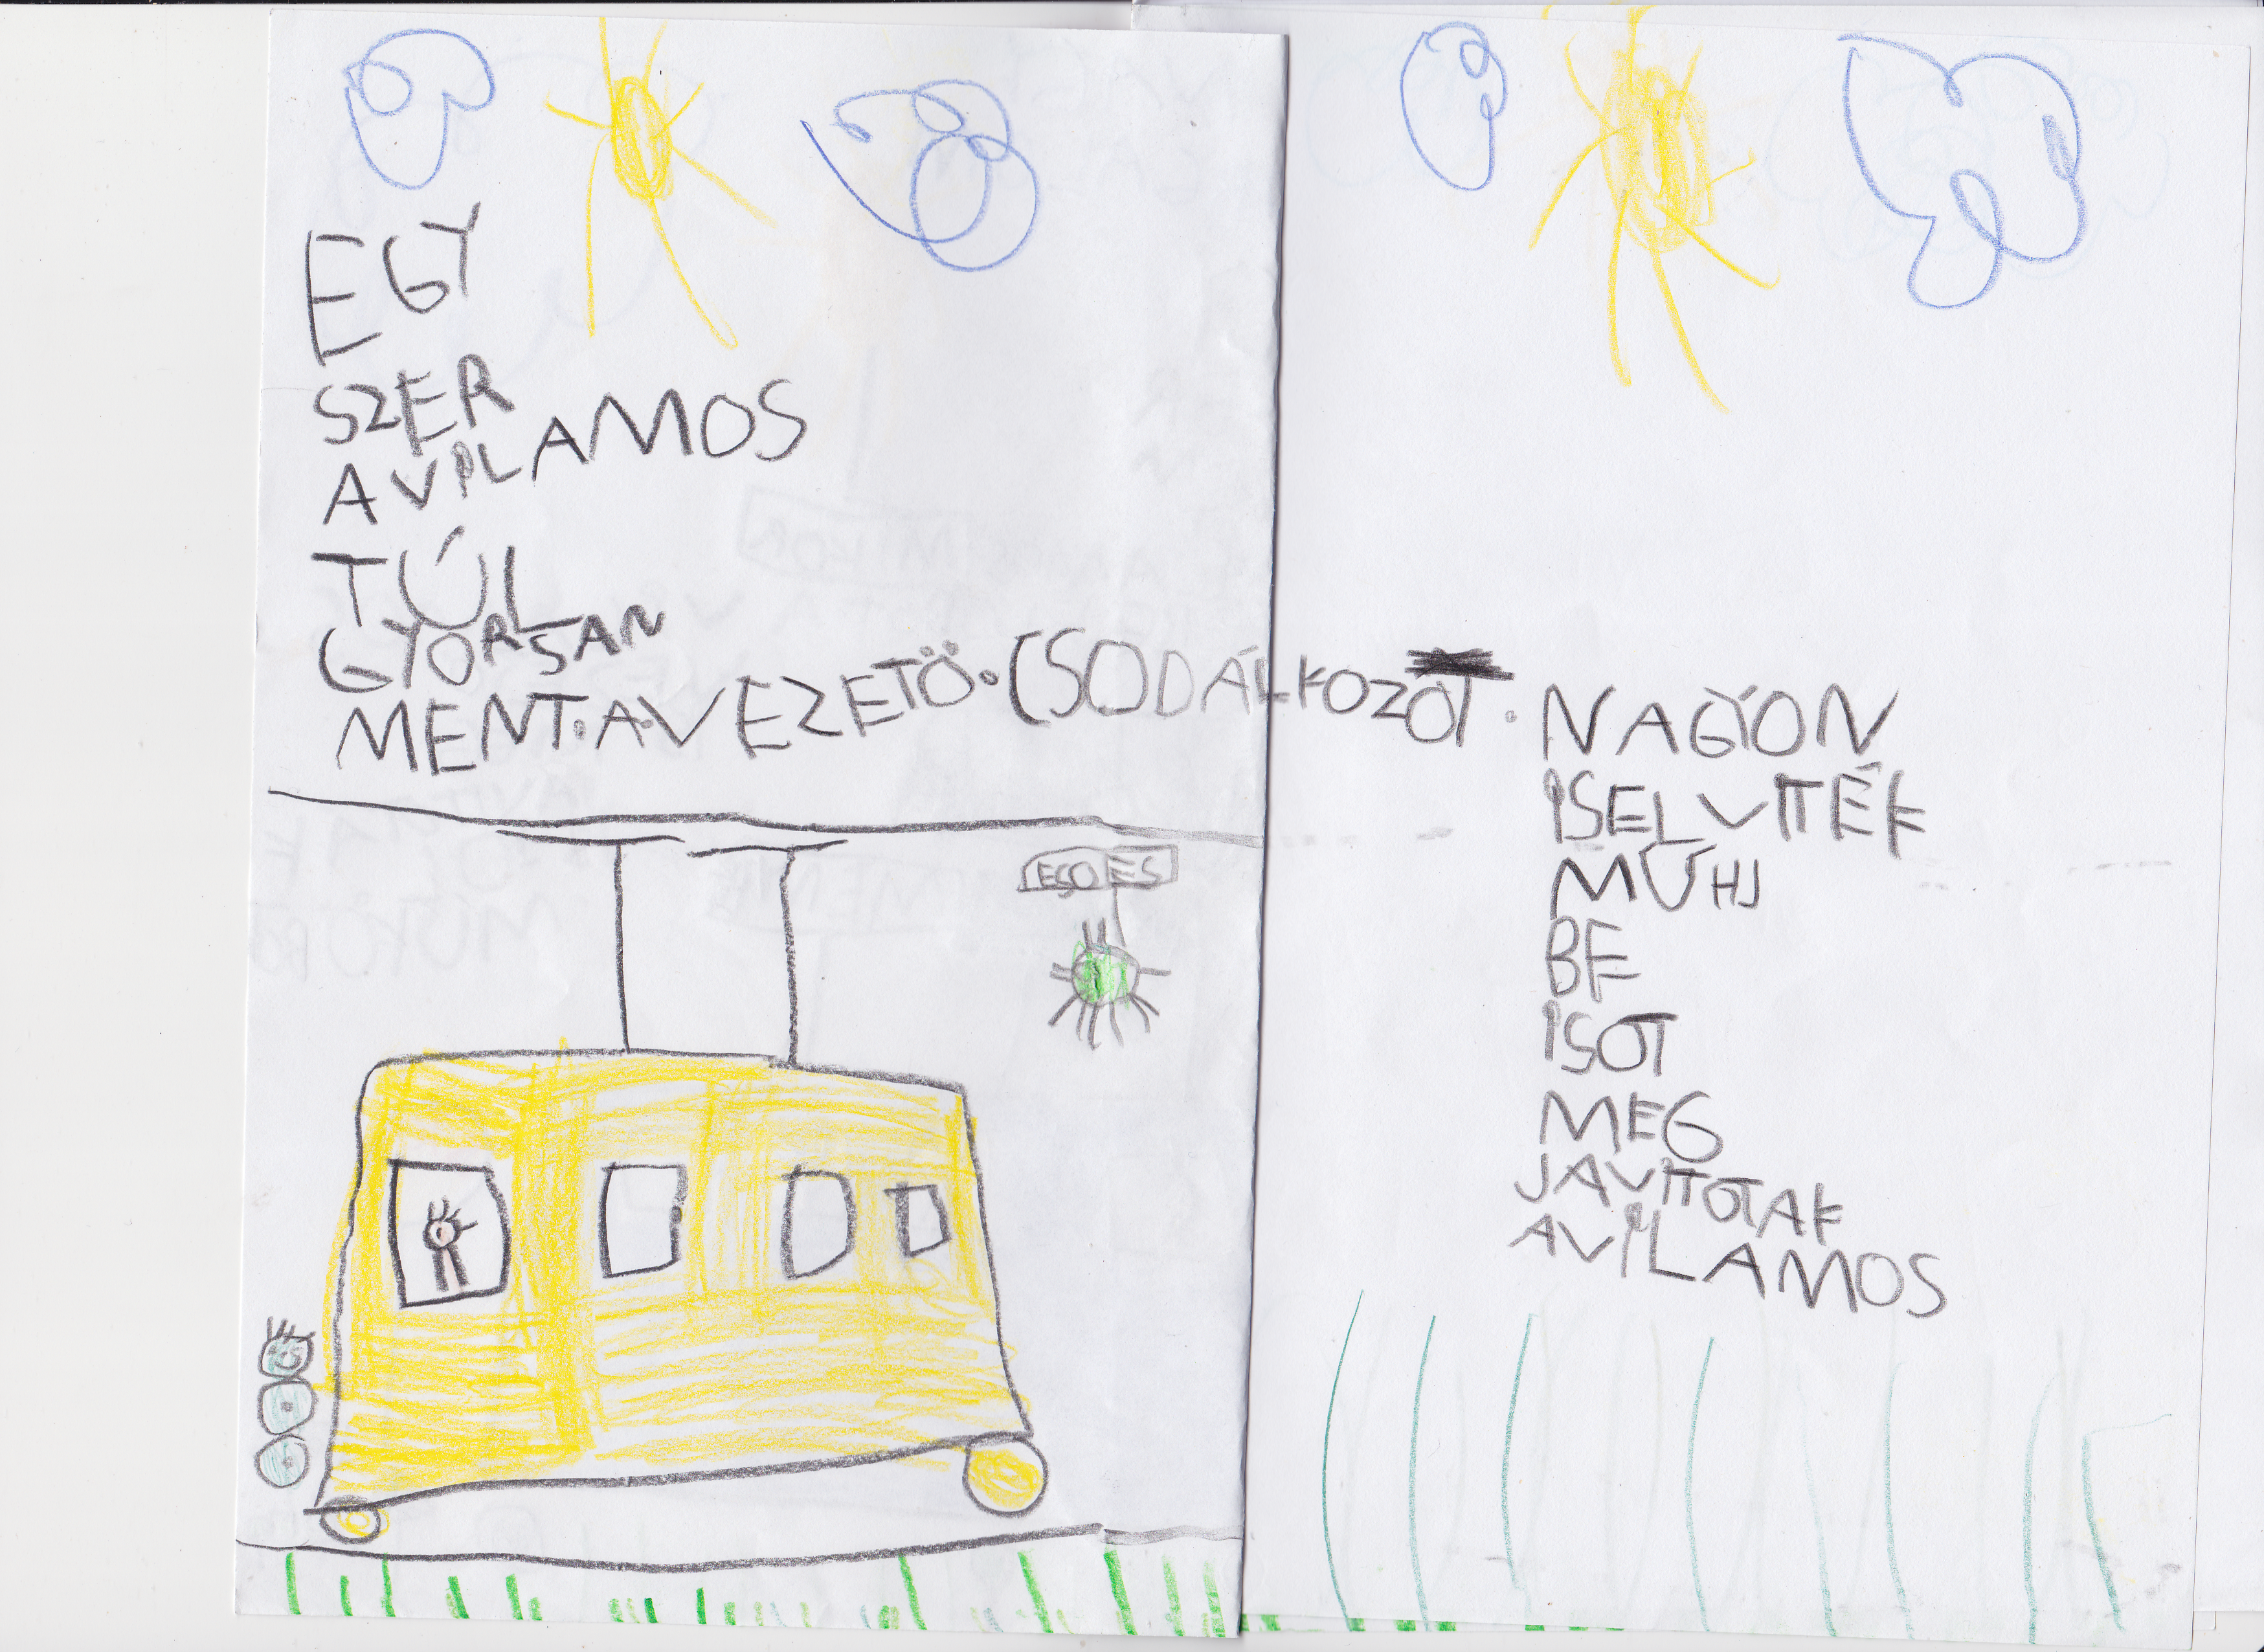 EGY
SZER
A VILAMOS
TÚL
GYORSAN
MENT.A.VEZETÖ.CSODÁLKOZOT.
NAGYON
ISELVITTÉK
MŰHJ
BE
ISOT
MEG
JAVITOTAK
AVILAMOS